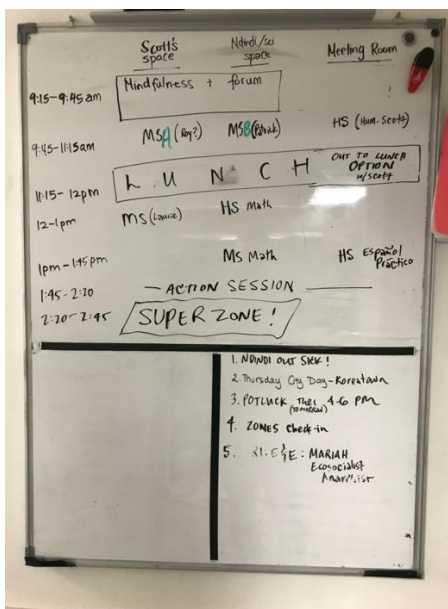 Scott's space
Ndindi/sci space
Meeting Room
9:15-9:45am
Mindfulness + forum
9:45-11:15am
MSA (Roy?)
MSB (Patrick)
HS (Hum. Scott)
11:15-12pm
LUNCH
OUT TO LUNCH
OPTION
w/scott
12-1pm
MS (Laurie)
HS Math
1pm-1:45pm
MS Math
HS Español
Práctico
1:45-2:20
— ACTION SESSION —
2:20-2:45
SUPER ZONE!
1. NDINDI OUT SICK!
2. Thursday City Day - Koreatown
3. POTLUCK, 4-6 PM
(TOMORROW)
4. ZONES check-in
5. MARIAH
Ecosocialist